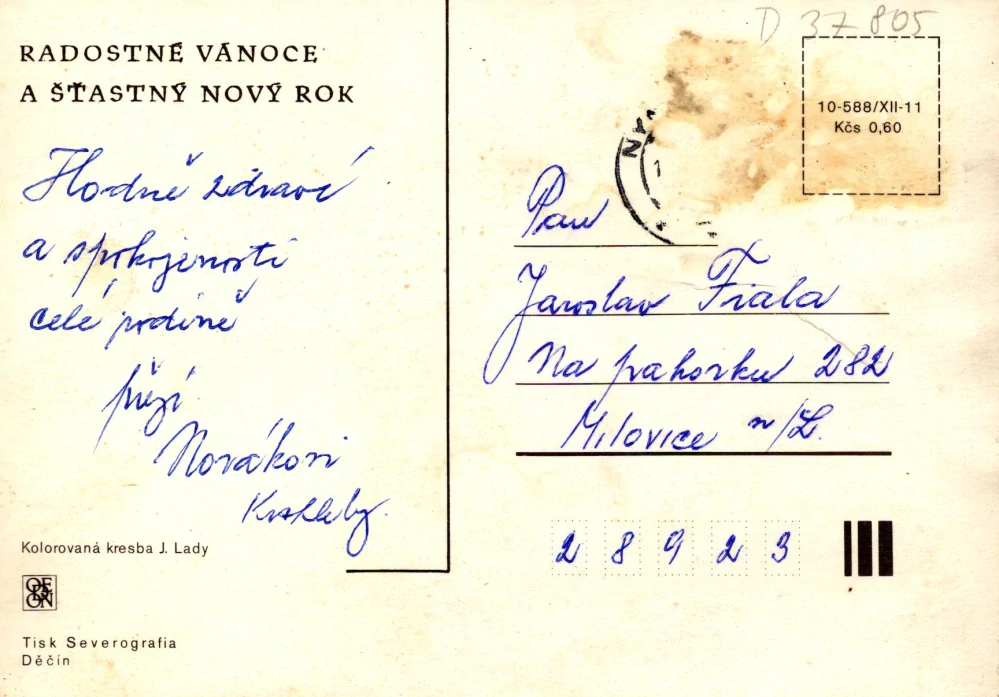 D 37 805
RADOSTNÉ VÁNOCE
A ŠŤASTNÝ NOVÝ ROK
10-588/XII-11
Kčs 0,60
NY
Hodně zdraví
a spokojenosti
celé rodině
přejí
Novákovi
Pan
Jaroslav Fiala
Na pahorku 282
Milovice n/L.
28923
Kolorovaná kresba J. Lady
Tisk Severografia
Děčín